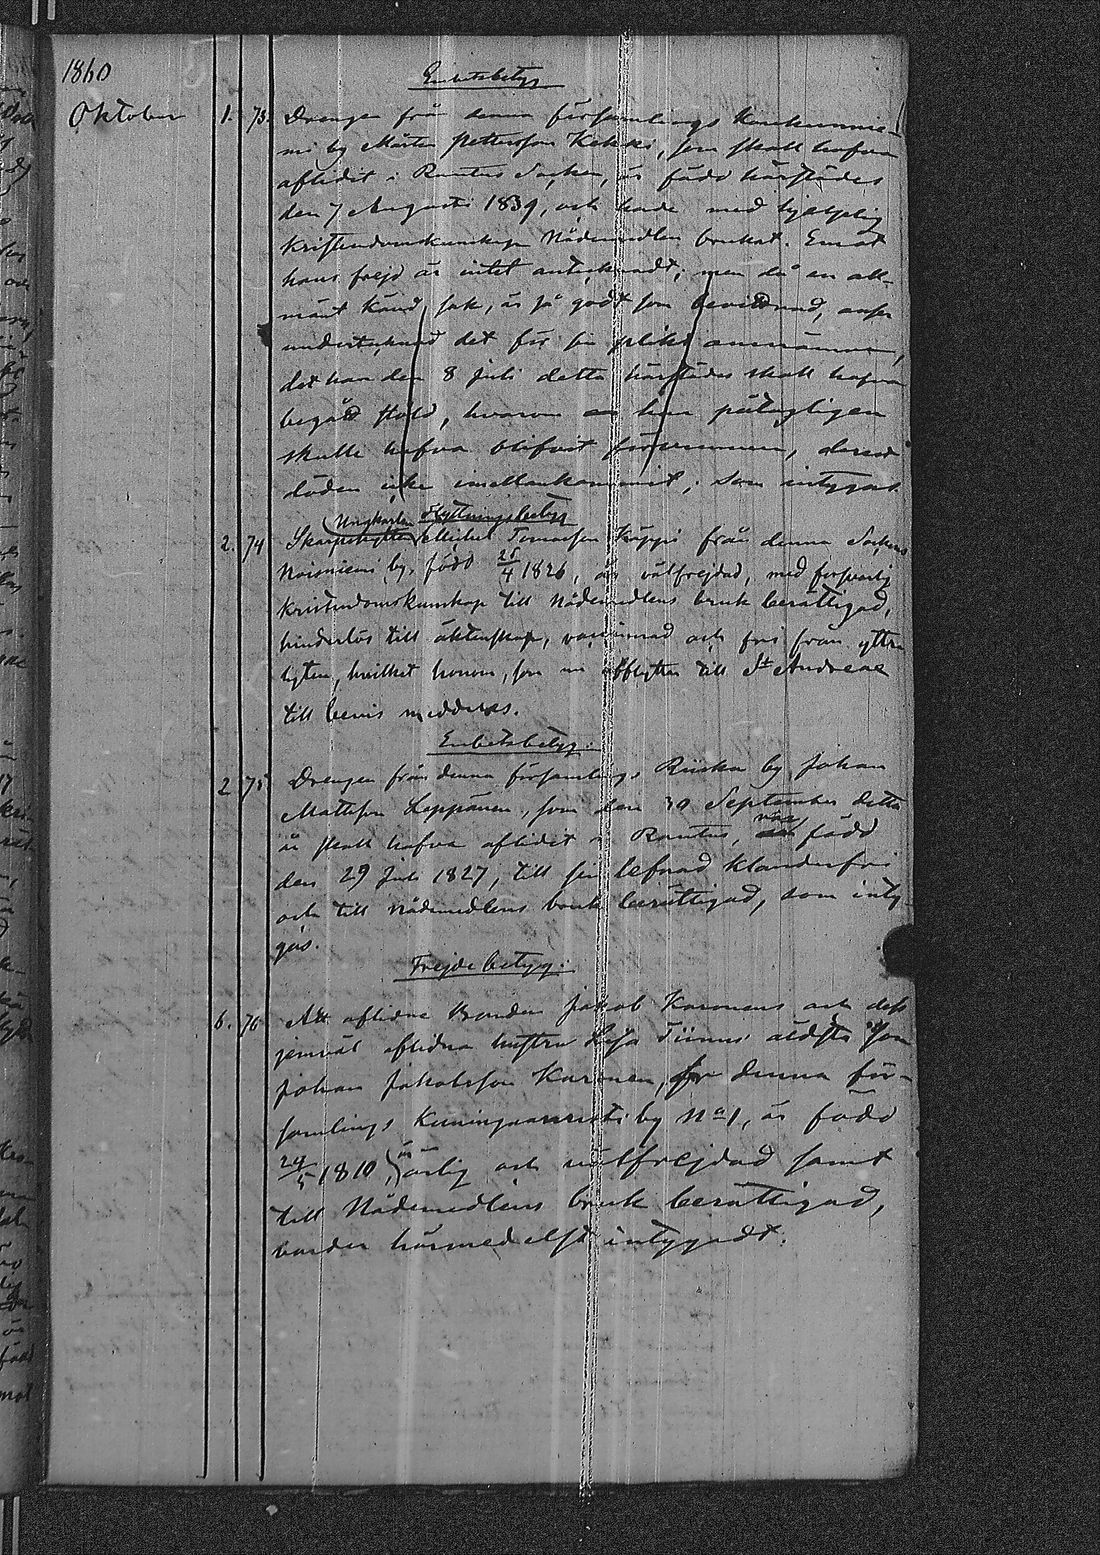 1860
Enbetsbetyg
Oktober 1. 73. Drengen från denna församlings
by Mårten Pettersson Kekki, som skall hafva
aflidit i Rautus Socken, är född härstädes
den 7 Augusti 1839, och hade med hjelplig
Kristendomskunskap Nådemedlen brukat. Emot
hans frejd är intet antecknadt; men då en all-
mänt känd sak, är så godt som bevittnad, anser
undertecknad det för sin plikt
det han den 8 Juli detta härstädes skall hafva
begått stöld, hvarom han påtagligen
skulle hafva blifvit förvunnen, derest
döden icke emellankommit; som intygas
Ungkarlen Flyttningsbetyg
2. 74 Michel Tomasson Käppi från denna Sockens
Noisniemi by, född 25/4 1826, är välfrejdad, med försvarlig
kristendomskunskap till Nådemedlens bruk berättigad,
hinderlös till äktenskap, vaccinerad och fri från yttre
lyten, hvilket honom, som en afflyttar till St Andreae
till bevis meddelas.
Enbetsbetyg.
2 75 Drengen från denna församlings Riiska by Johan
Mattsson Leppänen, som den 30 September detta
år skall hafva aflidit i Rautus, var född
den 29 Juli 1827, till sin lefnad klanderfri
och till Nådemedlens bruk berättigad, som inty-
gas.
Frejdebetyg.
6. 76 Att aflidne Bonden Jakob Karonens och dess
jemväl aflidna hustru Lisa Tiinus äldsta Son
Johan Jakobsson Karonen, från denna för-
samlings by No 1, är född
24/5 1810, är ärlig och välfrejdad samt
till Nådemedlens bruk berättigad,
varder härmedelst intygadt.